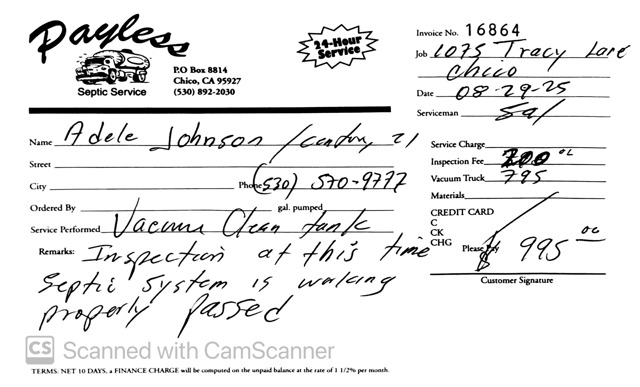 Payless
Septic Service
P.O Box 8814
Chico, CA 95927
(530) 892-2030
24-Hour
Service
Invoice No. 16864
Job 1075 Tracy Lane
Chico
Date 08-29-25
Serviceman Sal
Name Adele Johnson / Century 21
Street
City Phone (530) 570-9777
Ordered By gal. pumped
Service Performed Vacuum Clean tank
Remarks: Inspection at this time
Septic System is working
properly Passed
Service Charge
Inspection Fee 200 00
Vacuum Truck 795
Materials
CREDIT CARD
C
CK
CHG Please Pay $ 995 00
Customer Signature
CS Scanned with CamScanner
TERMS: NET 10 DAYS, a FINANCE CHARGE will be computed on the unpaid balance at the rate of 1 1/2% per month.